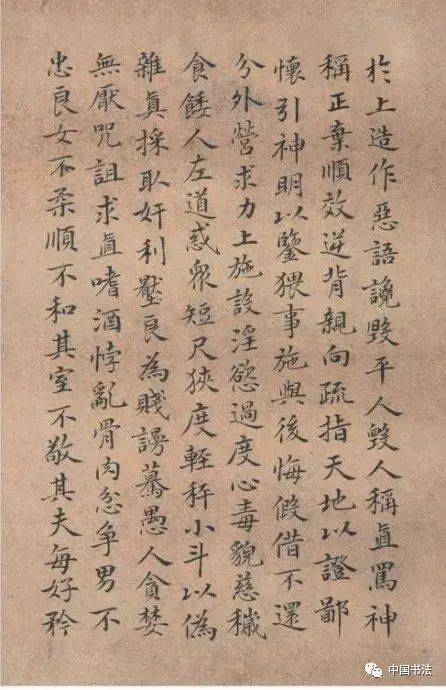 於上造作惡語讒毀平人毀人稱直罵神
稱正棄順效逆背親向疏指天地以證鄙
懷引神明以鑒猥事施與後悔假借不還
分外營求力上施設淫慾過度心毒貌慈穢
食餧人左道惑眾短尺狹度輕秤小斗以偽
雜真採取奸利壓良為賤謾驀愚人貪婪
無厭咒詛求直嗜酒悖亂骨肉忿爭男不
忠良女不柔順不和其室不敬其夫每好矜
中国书法